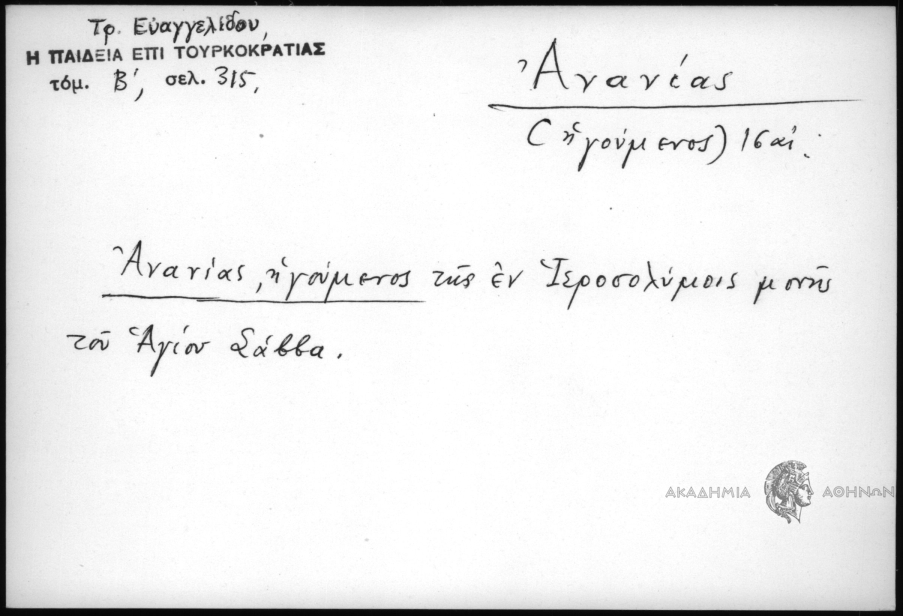 Τρ. Εὐαγγελίδου,
Η ΠΑΙΔΕΙΑ ΕΠΙ ΤΟΥΡΚΟΚΡΑΤΙΑΣ
τόμ. Β', σελ. 315,
Ἀνανίας
(ἡγούμενος) 16 αἰ.
Ἀνανίας, ἡγούμενος τῆς ἐν Ἱεροσολύμοις μονῆς
τοῦ Ἁγίου Σάββα.
ΑΚΑΔΗΜΙΑ ΑΘΗΝΩΝ